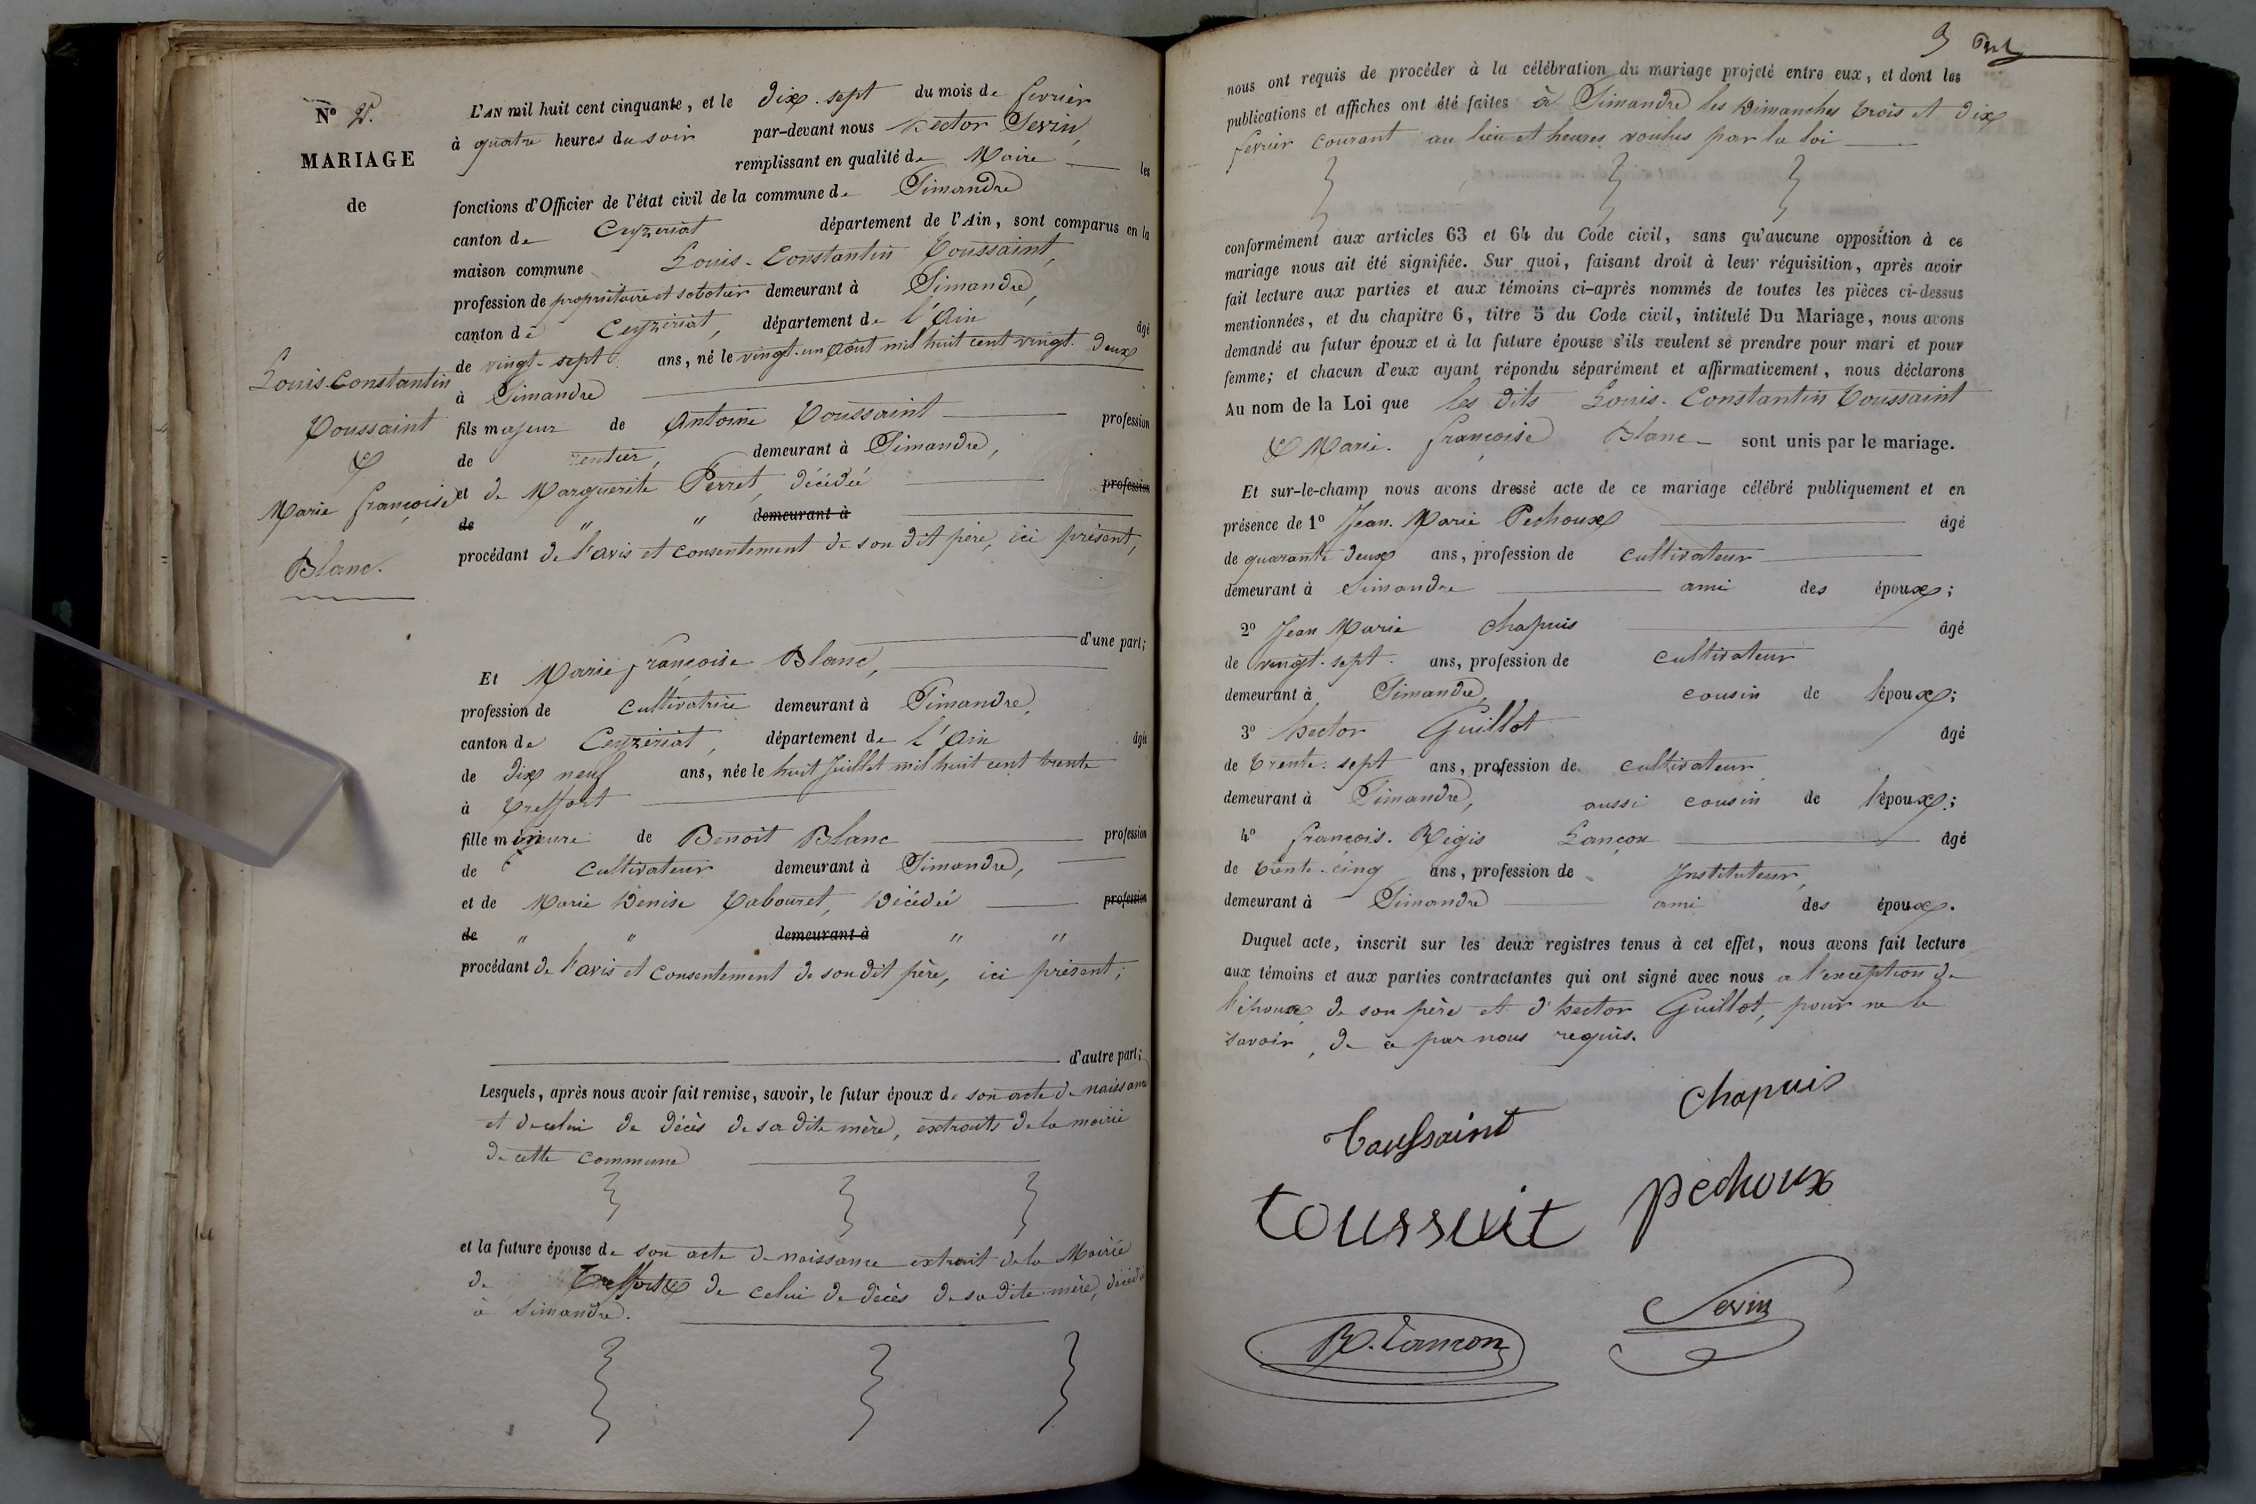 N° 2.
MARIAGE
de
Louis-Constantin
Toussaint
&
Marie françoise
Blanc.
L'AN mil huit cent cinquante, et le dix-sept du mois de fevrier
à quatre heures du soir par-devant nous hector Sevin,
remplissant en qualité de Maire les
fonctions d'Officier de l'état civil de la commune de Simandre
canton de Ceyzeriat département de l'Ain, sont comparus en la
maison commune Louis-Constantin Toussaint,
profession de propriétaire et sabotier demeurant à Simandre,
canton de Ceyzériat, département de l'Ain âgé
de vingt-sept ans, né le vingt-un août mil huit cent vingt-deux
à Simandre
fils majeur de Antoine Toussaint profession
de rentier, demeurant à Simandre,
et de Marguerite Perret, décédée profession
de " " demeurant à
procédant de l'avis et consentement de son dit père, ici présent,
d'une part;
Et Marie françoise Blanc,
profession de cultivatrice demeurant à Simandre,
canton de Ceyzériat, département de l'Ain âgée
de dix neuf ans, née le huit Juillet mil huit cent trente
à Treffort
fille mineure de Benoit Blanc profession
de cultivateur demeurant à Simandre,
et de Marie Denise Tabouret, Décédée profession
de " " demeurant à " "
procédant de l'avis et consentement de son dit père, ici présent;
d'autre part;
Lesquels, après nous avoir fait remise, savoir, le futur époux de son acte de naissance
et de celui de décès de sa dite mère, extraits de la mairie
de cette commune
et la future épouse de son acte de naissance extrait de la Mairie
de Treffort & de celui de décès de sa dite mère, décédée
à Simandre.
nous ont requis de procéder à la célébration du mariage projeté entre eux, et dont les
publications et affiches ont été faites à Simandre les Dimanches trois et dix
fevrier courant au lieu et heures voulus par la loi
conformément aux articles 63 et 64 du Code civil, sans qu'aucune opposition à ce
mariage nous ait été signifiée. Sur quoi, faisant droit à leur réquisition, après avoir
fait lecture aux parties et aux témoins ci-après nommés de toutes les pièces ci-dessus
mentionnées, et du chapitre 6, titre 5 du Code civil, intitulé Du Mariage, nous avons
demandé au futur époux et à la future épouse s'ils veulent se prendre pour mari et pour
femme; et chacun d'eux ayant répondu séparément et affirmativement, nous déclarons
Au nom de la Loi que les dits Louis-Constantin Toussaint
& Marie-françoise Blanc sont unis par le mariage.
Et sur-le-champ nous avons dressé acte de ce mariage célébré publiquement et en
présence de 1° Jean-Marie Pechoux âgé
de quarante deux ans, profession de cultivateur
demeurant à Simandre ami des époux;
2° Jean Marie Chapuis âgé
de vingt-sept ans, profession de cultivateur
demeurant à Simandre, cousin de l'époux;
3° hector Guillot âgé
de trente-sept ans, profession de cultivateur
demeurant à Simandre, aussi cousin de l'époux;
4° françois-Régis Lançon âgé
de trente-cinq ans, profession de Instituteur,
demeurant à Simandre ami des époux.
Duquel acte, inscrit sur les deux registres tenus à cet effet, nous avons fait lecture
aux témoins et aux parties contractantes qui ont signé avec nous a l'exception de
l'épouse, de son père et d'hector Guillot, pour ne le
savoir, de ce par nous requis.
Chapuis
Toussaint
pechoux
toussuit
Sevin
R. Lançon